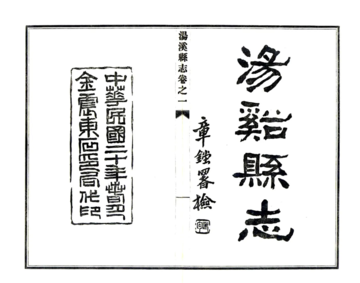 湯谿縣志
章鋀署撿
湯溪縣志卷之一
中華民國二十年鉛印
金震東石印局代印